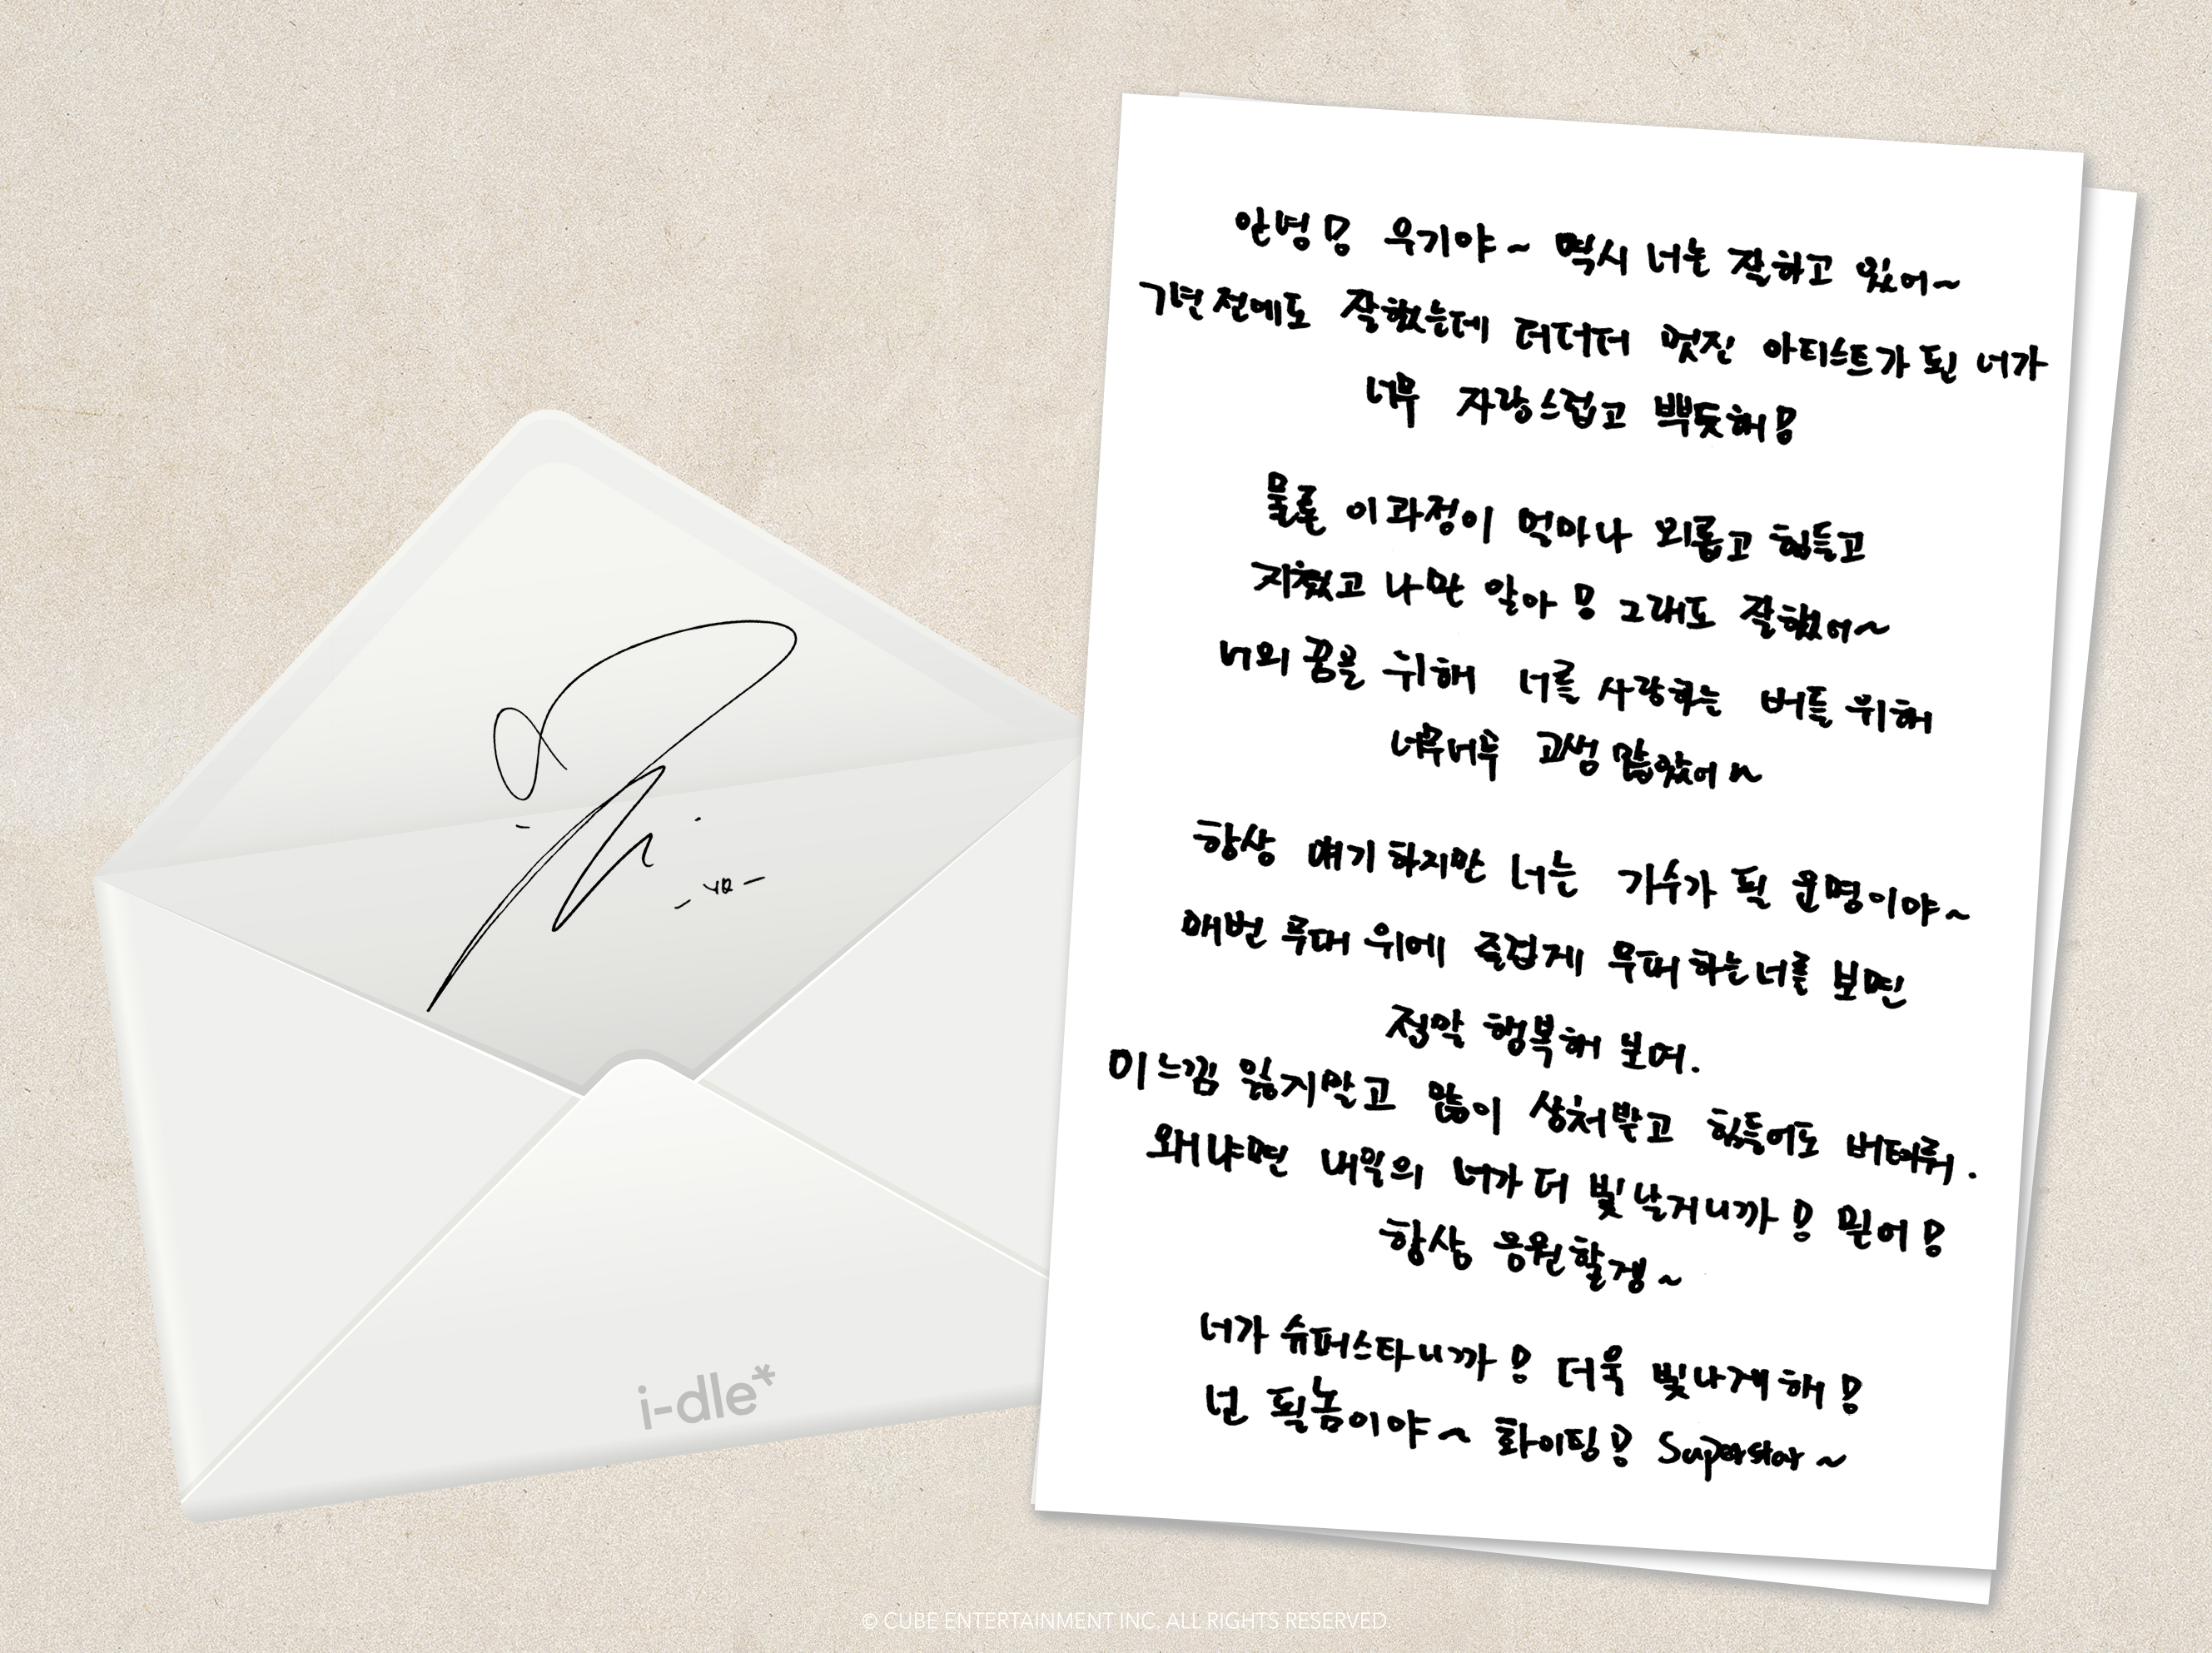 안녕! 우기야~ 역시 너는 잘하고 있어~
7년 전에도 잘했는데 더더더 멋진 아티스트가 된 너가
너무 자랑스럽고 뿌듯해!
물론 이 과정이 얼마나 외롭고 힘들고
지쳤고 나만 알아! 그래도 잘했어~
너의 꿈을 위해 너를 사랑하는 버들 위해
너무너무 고생 많았어~
항상 얘기하지만 너는 가수가 될 운명이야~
매번 무대 위에 즐겁게 무대하는 너를 보면
정말 행복해 보여.
이 느낌 잃지말고 많이 상처받고 힘들어도 버텨줘.
왜냐면 내일의 너가 더 빛날거니까! 믿어!
항상 응원할겡~
너가 슈퍼스타니까! 더욱 빛나게 해!
넌 될놈이야~ 화이팅! Superstar~
i-dle*
© CUBE ENTERTAINMENT INC. ALL RIGHTS RESERVED.